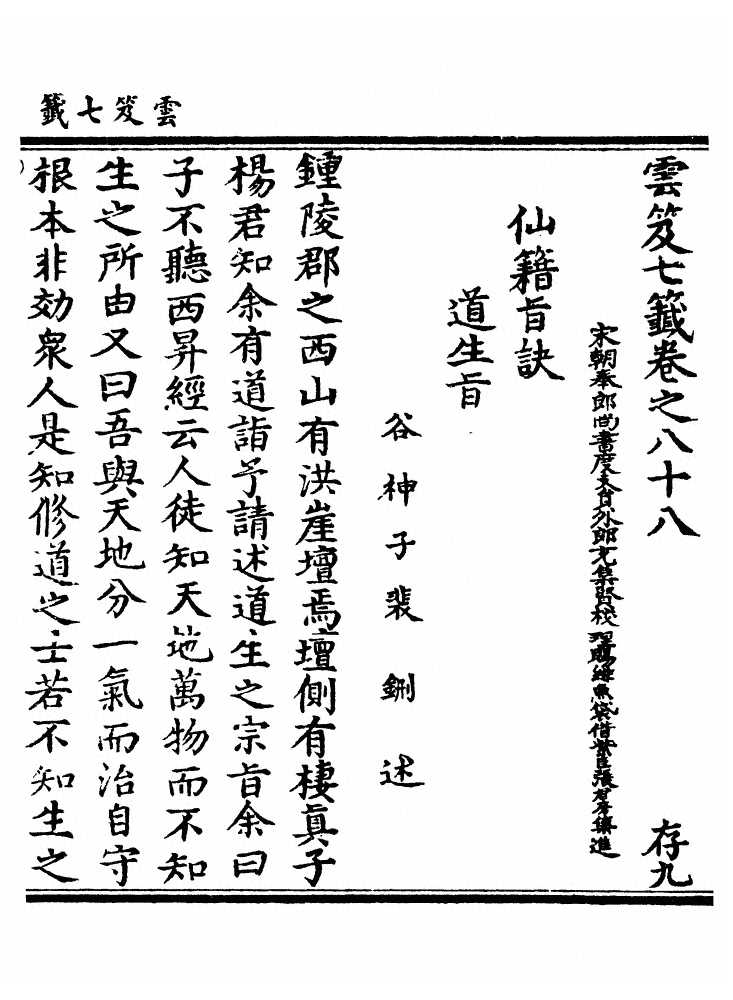 雲笈七籤
雲笈七籤卷之八十八 存九
宋朝奉郎尚書度支員外郎充集賢校理賜緋魚袋借紫臣張君房集進
仙籍旨訣
道生旨
谷神子裴鉶述
鍾陵郡之西山有洪崖壇焉壇側有棲真子
楊君知余有道詣予請述道生之宗旨余曰
子不聽西昇經云人徒知天地萬物而不知
生之所由又曰吾與天地分一氣而治自守
根本非効衆人是知修道之士若不知生之